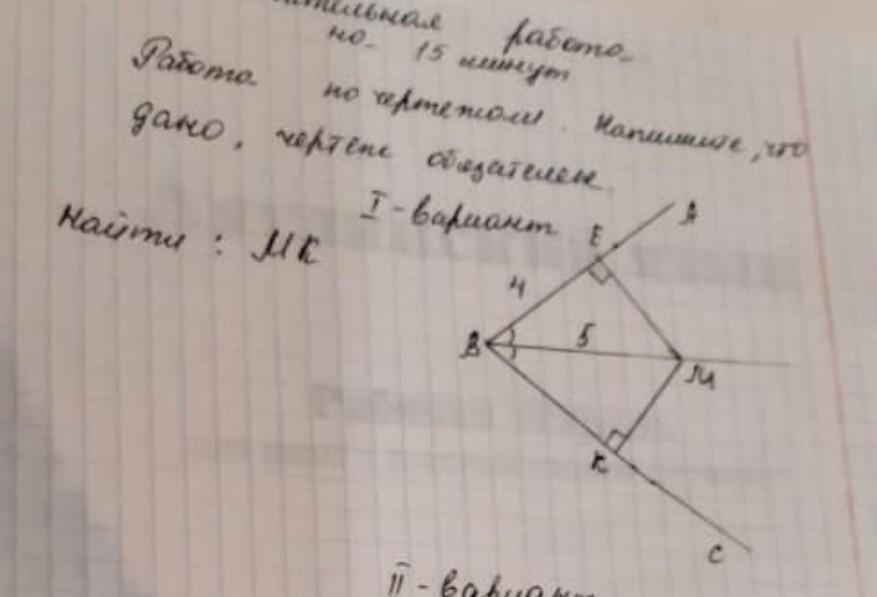 работа
на 15 минут
Работа по чертежам. Напишите, что
дано, чертеж обязателен.
I - вариант
Найти : МК
A
E
4
B
5
M
K
C
II - вариант